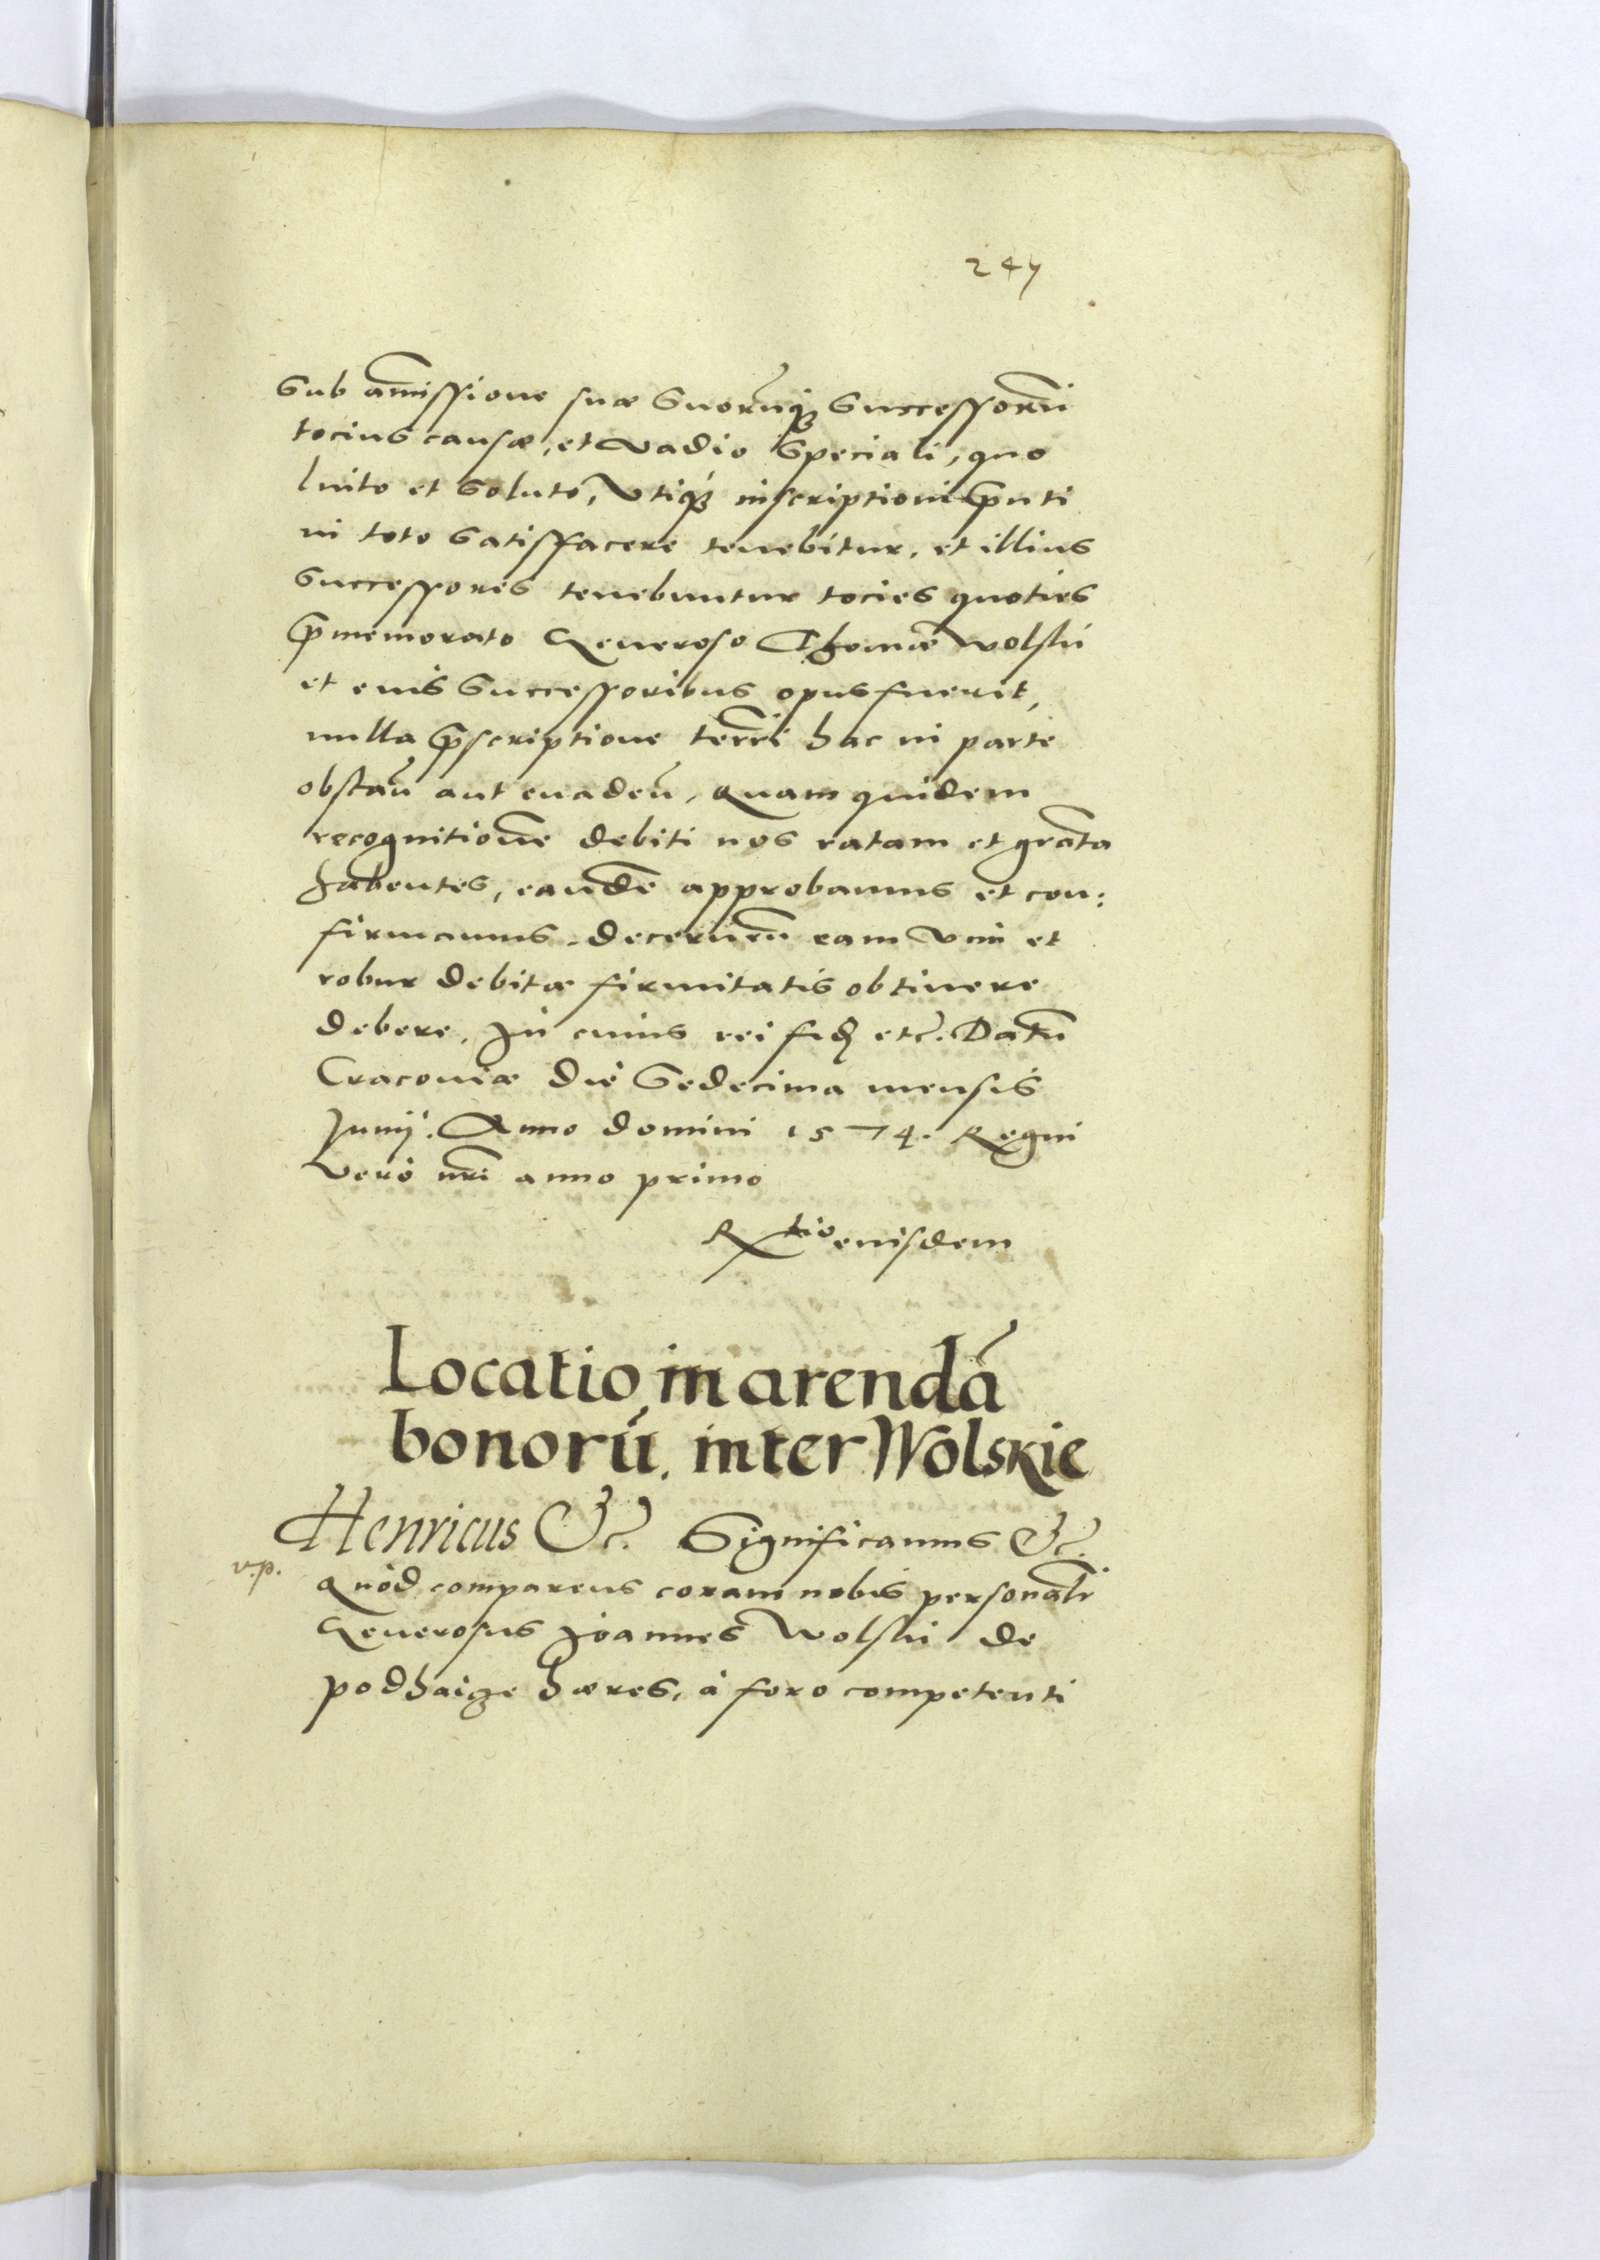 247
Sub amissione suæ Suorumq₃ Successorum
tocius causæ, et vadio Speciali, quo
luito et Soluto, Utiq₃ inscriptioni pnti
in toto Satisfacere tenebitur, et illius
Successores tenebuntur tocies quoties
pmemorato Generoso Thomæ Wolski
et eius Successoribus opus fuerit,
nulla pscriptione terrī hac in parte
obstañ aut euadeñ, Quam quidem
recognitionē debiti nos ratam et gratā
habentes, eandē approbamus et con:
firmamus. Decerneñ eam Vim et
robur debitæ firmitatis obtinere
debere, In cuius rei fid etc. Datū
Cracoviæ die Sedecima mensis
Junij. Anno domini 1574. Regni
Vero nrī anno primo
Rtio eiusdem
Locatio in arendā
bonorū inter Wolskie
Henricus &c. Significamus &c.
v.p.
Quod comparens coram nobis personalr
Generosus Joannes Wolski de
podhaige hæres, à foro competenti